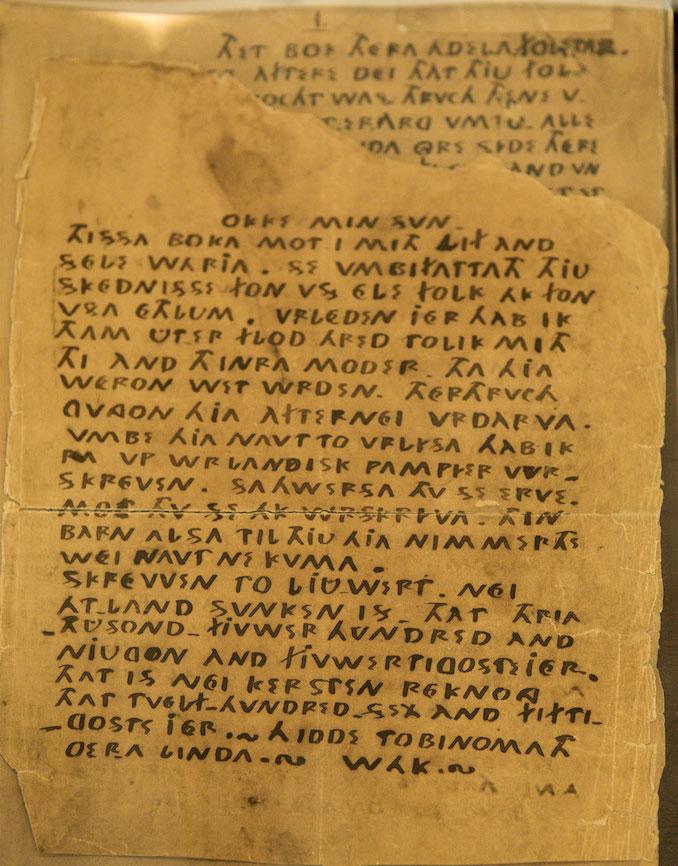 ÞET BOK ÞERA ADELAFOLSTAR.
AFTERE DEI ÞAT ÞIU FOL
OCHT WAS ÞRVCH ÞENE V
VMTU. ALLE
SIDE ÞERE
AND VN
OKKE MIN SVN.
ÞISSA BOKA MOT I MIÞ LIF AND
SELE WARIA. SE VMBIFATTAÞ ÞIU
SKEDNISSE FON VS ELE FOLK AK FON
VSA EÞLUM. VRLEDEN IER HAB IK
ÞAM UTER FLOD HRED TOLIK MIÞ
ÞI AND ÞINRA MODER. ÞA HIA
WERON WET WRDEN. ÞERÞRVCH
GVNGON HIA AFTERNEI VRDARVA.
VMBE HIA NAVT TO VRLYSA HAB IK
RA VP WRLANDISK PAMPYER WR-
SKREVEN. SAHWERSA ÞU SE ERVE.
MOT ÞU SE AK WRSKRYVA. ÞIN
BARN ALSA TIL ÞIU HIA NIMMERÞE
WEI NAVT NE KUMA.
SKREVVEN TO LIUWERT. NEI
ATLAND SUNKEN IS. ÞAT ÞRIA
ÞUSOND-FIUWER HUNDRED AND
NIUGON AND FIUWERTIGOSTE IER.
ÞAT IS NEI KERSTEN REKNONG
ÞAT TVELF-HVNDRED SEX AND FIFTI-
-GOSTE IER.~ HIDDE TOBINOMAÞ
OERA LINDA.~ WAK.~